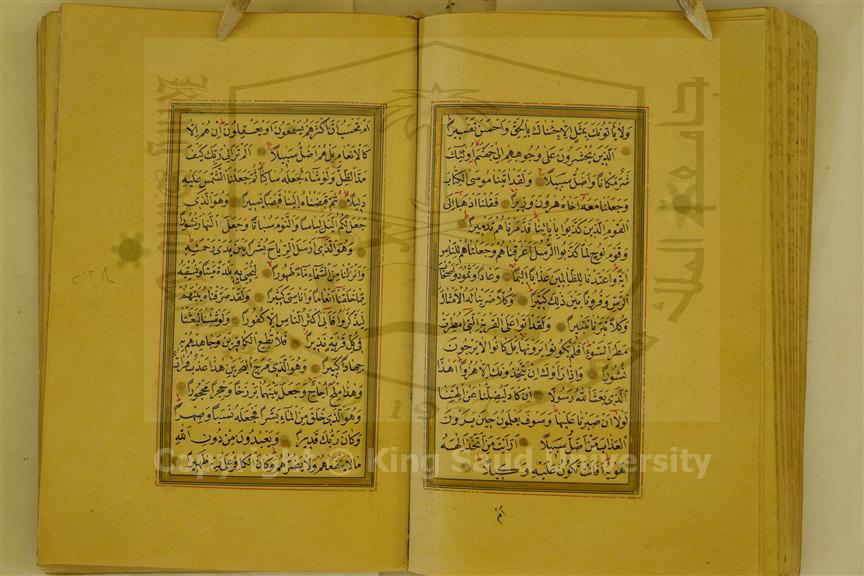 ولا يأتونك بمثل الا جئناك بالحق واحسن تفسيرا
الذين يحشرون على وجوههم الى جهنم اولئك
شر مكانا واضل سبيلا ولقد اتينا موسى الكتاب
وجعلنا معه اخاه هرون وزيرا فقلنا اذهبا الى
القوم الذين كذبوا باياتنا فدمرناهم تدميرا
وقوم نوح لما كذبوا الرسل اغرقناهم وجعلناهم للناس
اية واعتدنا للظالمين عذابا اليما وعادا وثمود واصحاب
الرس وقرونا بين ذلك كثيرا وكلا ضربنا له الامثال
وكلا تبرنا تتبيرا ولقد اتوا على القرية التى امطرت
مطر السوء افلم يكونوا يرونها بل كانوا لا يرجون
نشورا واذا راوك ان يتخذونك الا هزوا اهذا
الذى بعث الله رسولا ان كاد ليضلنا عن الهتنا
لولا ان صبرنا عليها وسوف يعلمون حين يرون
العذاب من اضل سبيلا ارايت من اتخذ الهه
هويه افانت تكون عليه وكيلا
ام
ام تحسب ان اكثرهم يسمعون او يعقلون ان هم الا
كالانعام بل هم اضل سبيلا الم تر الى ربك كيف
مد الظل ولو شاء لجعله ساكنا ثم جعلنا الشمس عليه
دليلا ثم قبضناه الينا قبضا يسيرا وهو الذى
جعل لكم اليل لباسا والنوم سباتا وجعل النهار نشورا
وهو الذى ارسل الرياح بشرا بين يدى رحمته
وانزلنا من السماء ماء طهورا لنحيى به بلدة ميتا ونسقيه
مما خلقنا انعاما واناسى كثيرا ولقد صرفناه بينهم
ليذكروا فابى اكثر الناس الا كفورا ولو شئنا لبعثنا
فى كل قرية نذيرا فلا تطع الكافرين وجاهدهم به
جهادا كبيرا وهو الذى مرج البحرين هذا عذب فرات
وهذا ملح اجاج وجعل بينهما برزخا وحجرا محجورا
وهو الذى خلق من الماء بشرا فجعله نسبا وصهرا
وكان ربك قديرا ويعبدون من دون الله
ما لا ينفعهم ولا يضرهم وكان الكافر على ربه ظهيرا
جامعة الملك سعود
King Saud University
Copyright © King Saud University